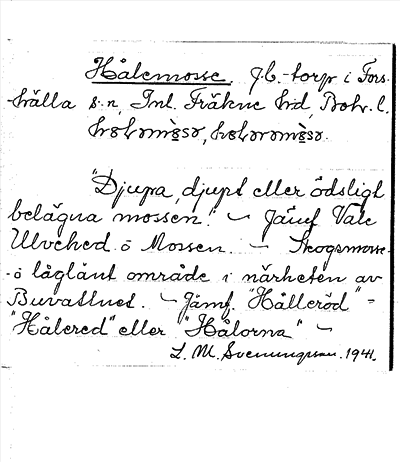 Hålemosse. f.b.-torp i Fors-
hälla s:n, Inl. Fräkne hrd, Bohr. l.
"Djupa, djupt eller ödsligt
belägna mossen." ~ Jämf Vale
Ulvehed ö Mossen. ~ Skogsmosse-
-o låglänt område i närheten av
Buvattnet. ~ Jämf. "Hålleröd" =
"Hålered" eller "Hålorna" ~
L. M. Svenungsson. 1941.